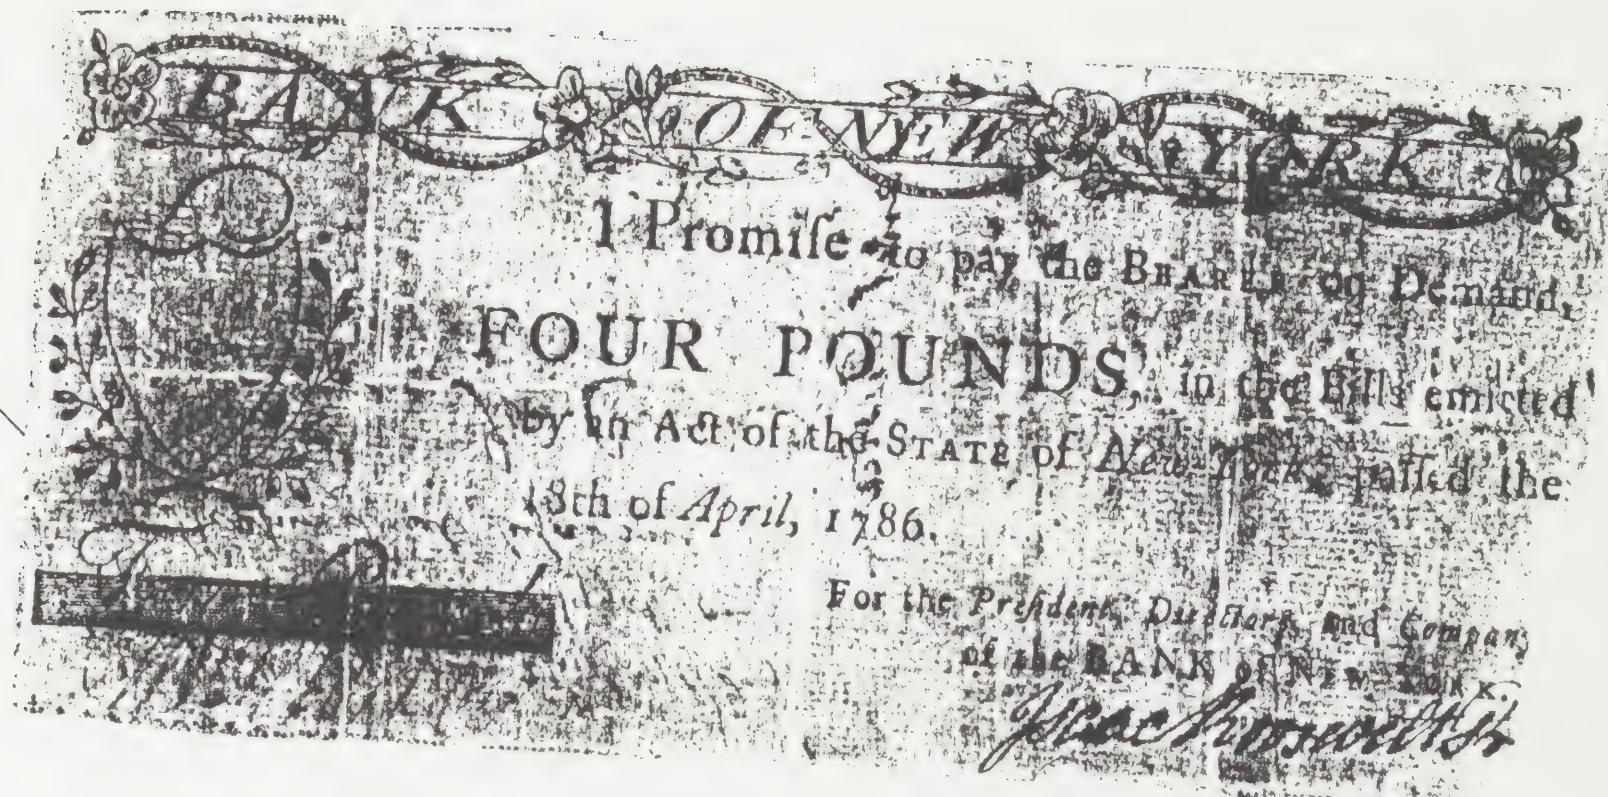 BANK OF NEW YORK
I Promiſe to pay the BEARER on Demand,
FOUR POUNDS, in the Bills emitted
by an Act of the STATE of New-York, paſſed the
18th of April, 1786.
For the Preſident, Directors, and Company
of the BANK of NEW-YORK.